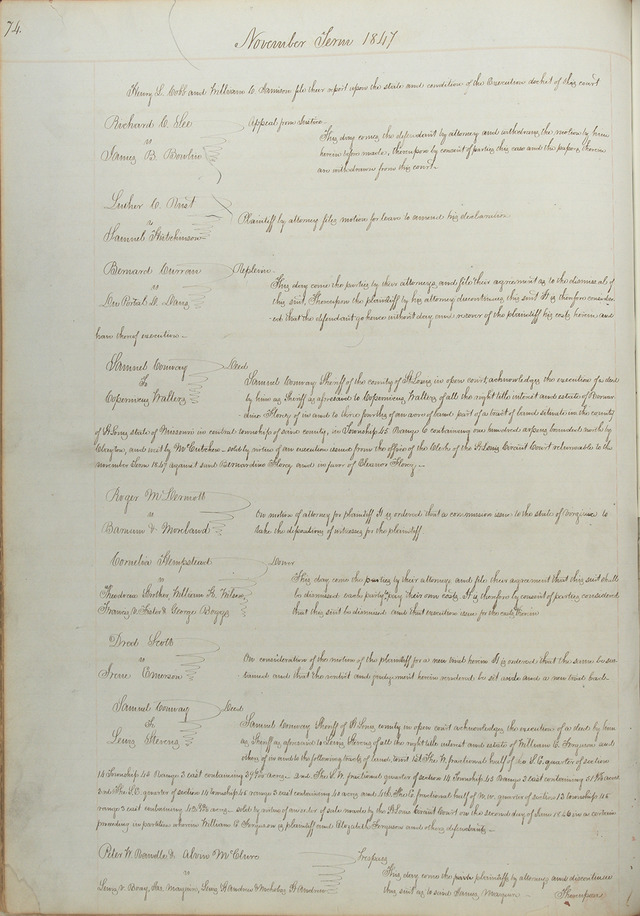 74.
November Term 1847
Henry L. Cobb and William C. Jamison file their report upon the state and condition of the Execution docket of this court
Richard C. Lee
vs
James B. Bowlin
Appeal from Justice
This day comes the defendant by attorney and withdraws the motion by him
herein before made, thereupon by consent of parties this case and the papers therein
are withdrawn from this court.
Luther C.
vs
Samuel Hutchinson
Plaintiff by attorney files motion for leave to amend his declaration
Bernard Curran
vs
Davis
Replevin
This day come the parties by their attorneys, and file their agreement as to the dismissal of
this suit, Thereupon the plaintiff by his attorney discontinues this suit It is therefore consider-
ed that the defendant go hence without day and recover of the plaintiff his costs herein and
have thereof execution.
Samuel Conway
To
Copernicus Walters
Deed
Samuel Conway Sheriff of the county of St Louis in open court, acknowledges the execution of a deed
by him as Sheriff as aforesaid to Copernicus Walters of all the right title interest and estate of Bernar-
dino Florez of in and to part of a tract of land situate in the county
of St Louis state of Missouri in central township of said county, in Township 45 Range 6 containing one hundred arpens bounded north by
Clayton, and west by McCutchen sold by virtue of an execution issued from the office of the Clerk of the St Louis Circuit Court returnable to the
November Term 1847 against said Bernardino Florez and in favor of Eleanor Florez
Roger McDermott
vs
Barnum & Moreland
On motion of attorney for plaintiff it is ordered that a commission issue to the state of Virginia to
take the deposition of witnesses for the plaintiff
Cornelia Hempstead
vs
Theodore Barker, William H. Wilson,
Francis & George Boggs
Dower
This day come the parties by their attorneys, and file their agreement that this suit shall
be dismissed each party pay their own costs. It is therefore by consent of parties considered
that this suit be dismissed and that execution issue for the costs herein
Dred Scott
vs
Irene Emerson
On consideration of the motion of the plaintiff for a new trial herein It is ordered that the same be sus-
tained and that the verdict and judgment herein rendered be set aside and a new trial had.
Samuel Conway
To
Lewis Stevens
Deed
Samuel Conway Sheriff of St Louis county in open court acknowledges the execution of a deed by him
as Sheriff as aforesaid to Lewis Stevens of all the right title interest and estate of William C. Ferguson and
others of in and to the following tracts of land, to wit 1st The W. fractional half of the S.E. quarter of section
14 Township 45 Range 3 east containing acres. 2nd The S.W. fractional quarter of section 14 Township 45 Range 3 east containing acres
3rd The S.E. quarter of section 14 township 46 range 3 east containing 40 acres and 4th The E fractional half of N.W. quarter of section 13 township 46
range 3 east containing acres sold by virtue of an order of sale made by the St Louis Circuit Court on the second day of June 1846 in a certain
proceeding in partition wherein William C. Ferguson is plaintiff and Elizabeth Ferguson and others defendants.
Peter W. Randle & Alvin McClure
vs
Lewis Bony, Jas. Maguire, Lewis & Nicholas
Trespass
This day come the plaintiffs by attorney and discontinue
this suit as to said James Maguire Thereupon